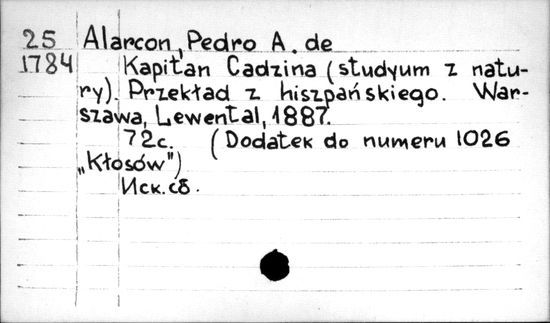 25 Alarcon, Pedro A. de
1784 Kapitan Cadzina (studyum z natu-
ry). Przekład z hiszpańskiego. War-
szawa, Lewental, 1887.
72c. (Dodatek do numeru 1026
„Kłosów")
Иск. сб.